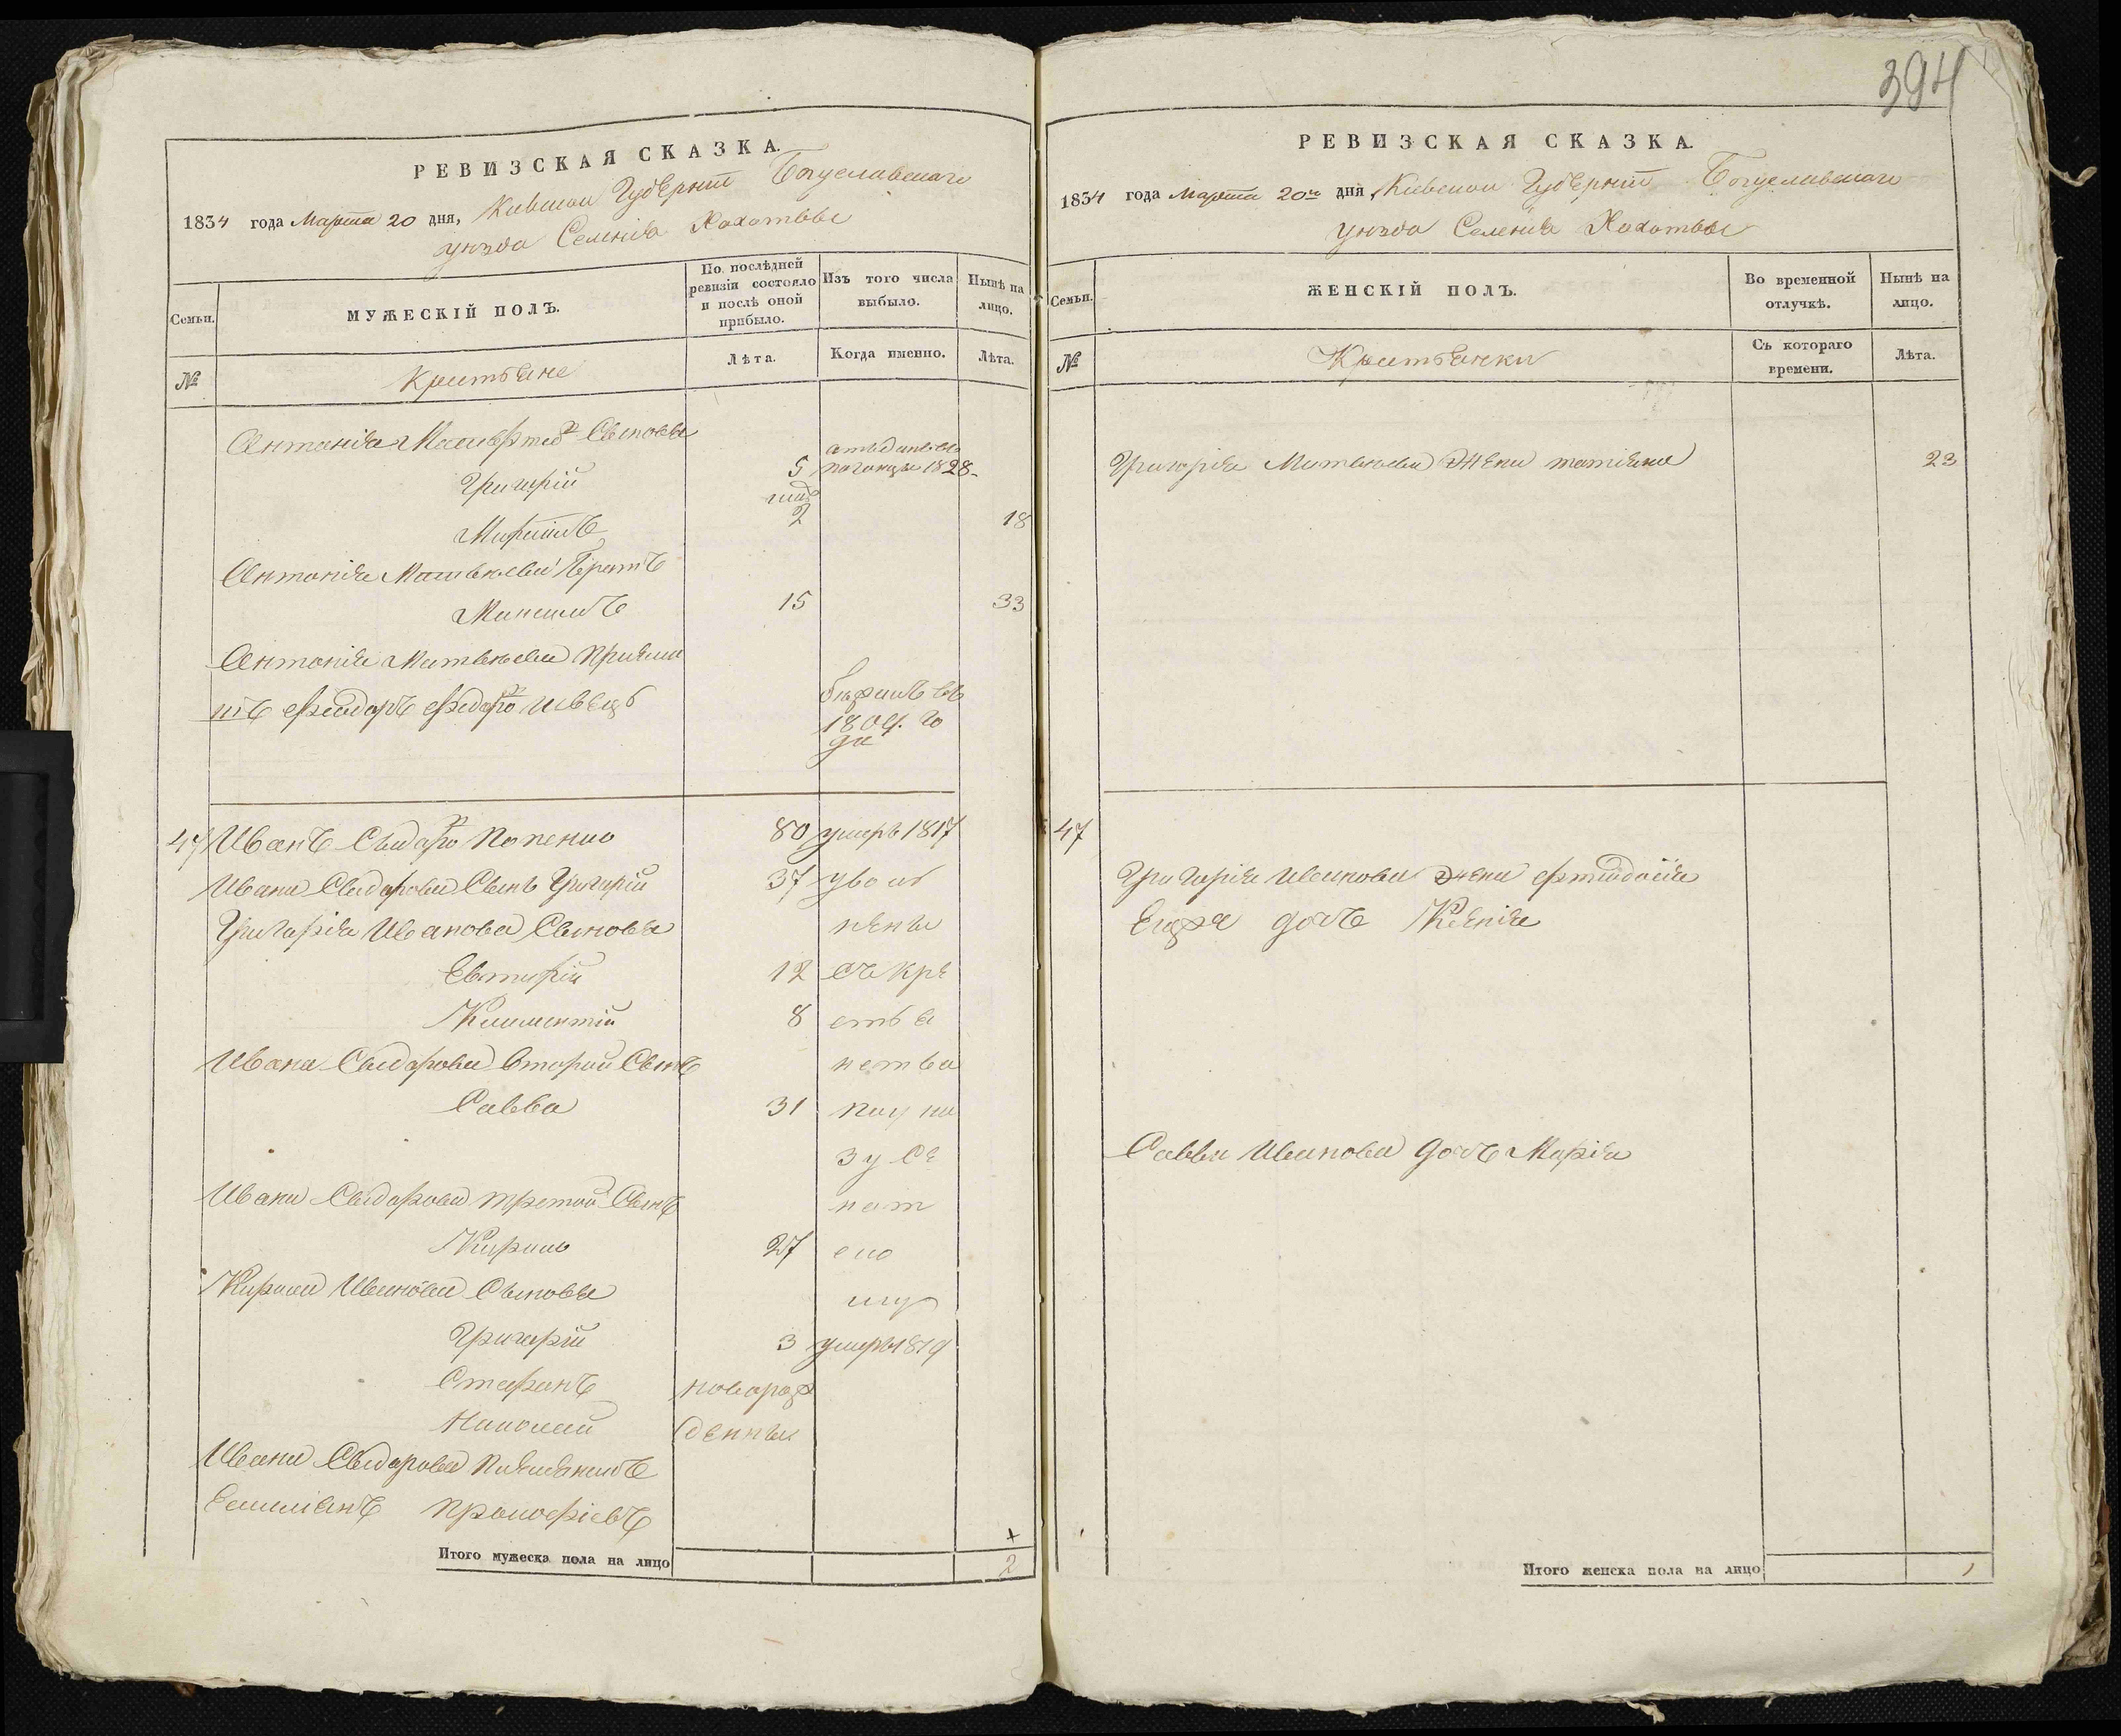 394
РЕВИЗСКАЯ СКАЗКА.
1834 года Марта 20 дня, Киевской Губернии Богуславскаго
уезда Селения Хохотвы
Семьи.
МУЖЕСКІЙ ПОЛЪ.
По послѣдней ревизіи состояло и послѣ оной прибыло.
Изъ того числа выбыло.
Нынѣ на лицо.
№
Крестьяне
Лѣта.
Когда именно.
Лѣта.
Антонія Сыновья
Григорій 5 1828
2 18
Антонія Матвеева Братъ
Максимъ 15 33
Антонія Матвеева
Швецъ
1809. го
да
47 Иванъ Сыдаро Попенко 80 умеръ 1817
Ивана Сыдарова Сынъ Григорій 37 уво
Григорія Иванова Сыновья нены
12 съ кре
Климентій 8 стья
Ивана Сыдарова Второй Сынъ нства
Савва 31 по ука
зу Се
Ивана Сыдарова третой Сынъ нат
Кирило 27 ско
Кирила Иванова Сыновья му
Григорій 3 умеръ 1819
Стефанъ новорож
Николай денны
Ивана Сыдарова племянникъ
Емиліянъ Прокофіевъ
Итого мужеска пола на лицо 2
РЕВИЗСКАЯ СКАЗКА.
1834 года Марта 20го дня, Киевской Губернии Богуславскаго
уезда Селения Хохотвы
Семьи.
ЖЕНСКІЙ ПОЛЪ.
Во временной отлучкѣ.
Нынѣ на лицо.
№
Крестьянки
Съ котораго времени.
Лѣта.
Григорія Матвеева жена татіяна 23
47
Григорія Иванова жена
Егоже дочь Ксенія
Саввы Иванова дочь Марія
Итого женска пола на лицо 1